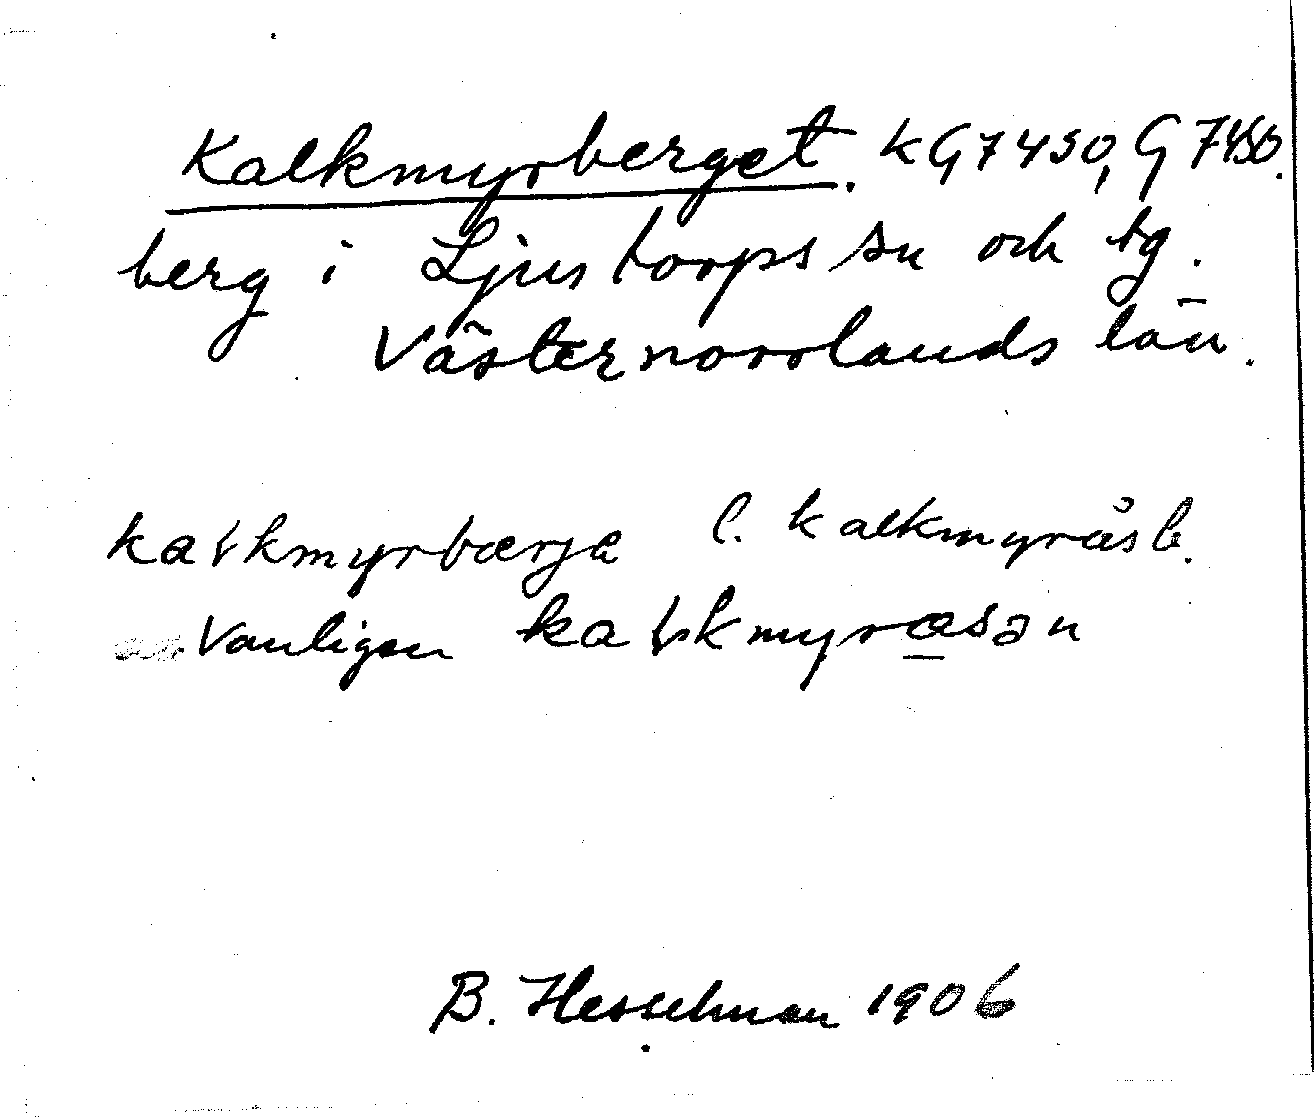 Kalkmyrberget. KG7450, G7450.
berg i Ljustorps sn och tg.
Västernorrlands län.
kałkmyrbærje l. kalkmyråsb.
Vanligen kałkmyrasən
B. Hesselman 1906